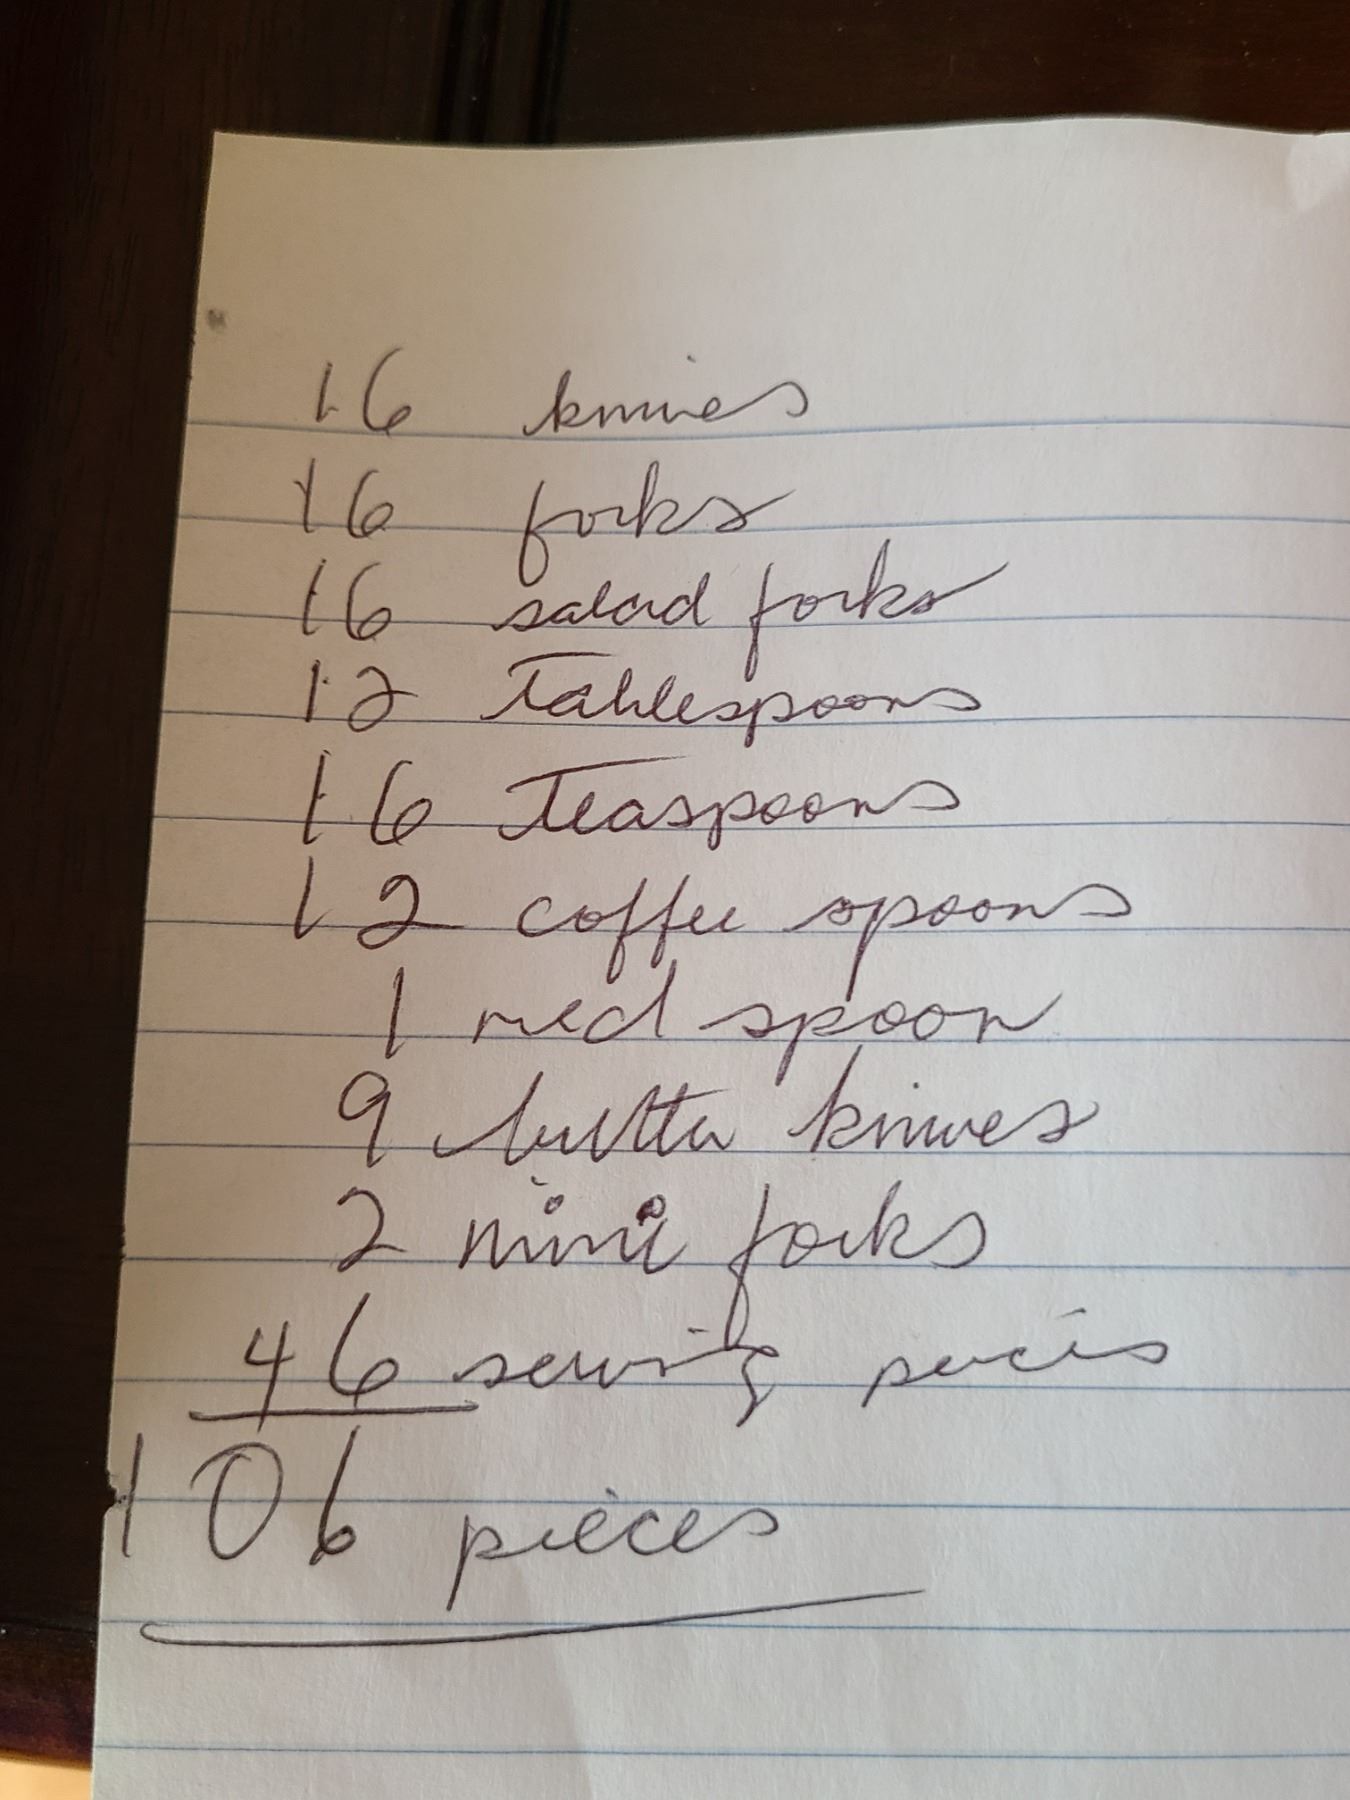 16 knives
16 forks
16 salad forks
12 Tablespoons
16 Teaspoons
12 coffee spoons
1 med spoon
9 butter knives
2 mini forks
46 serving peices
106 pieces